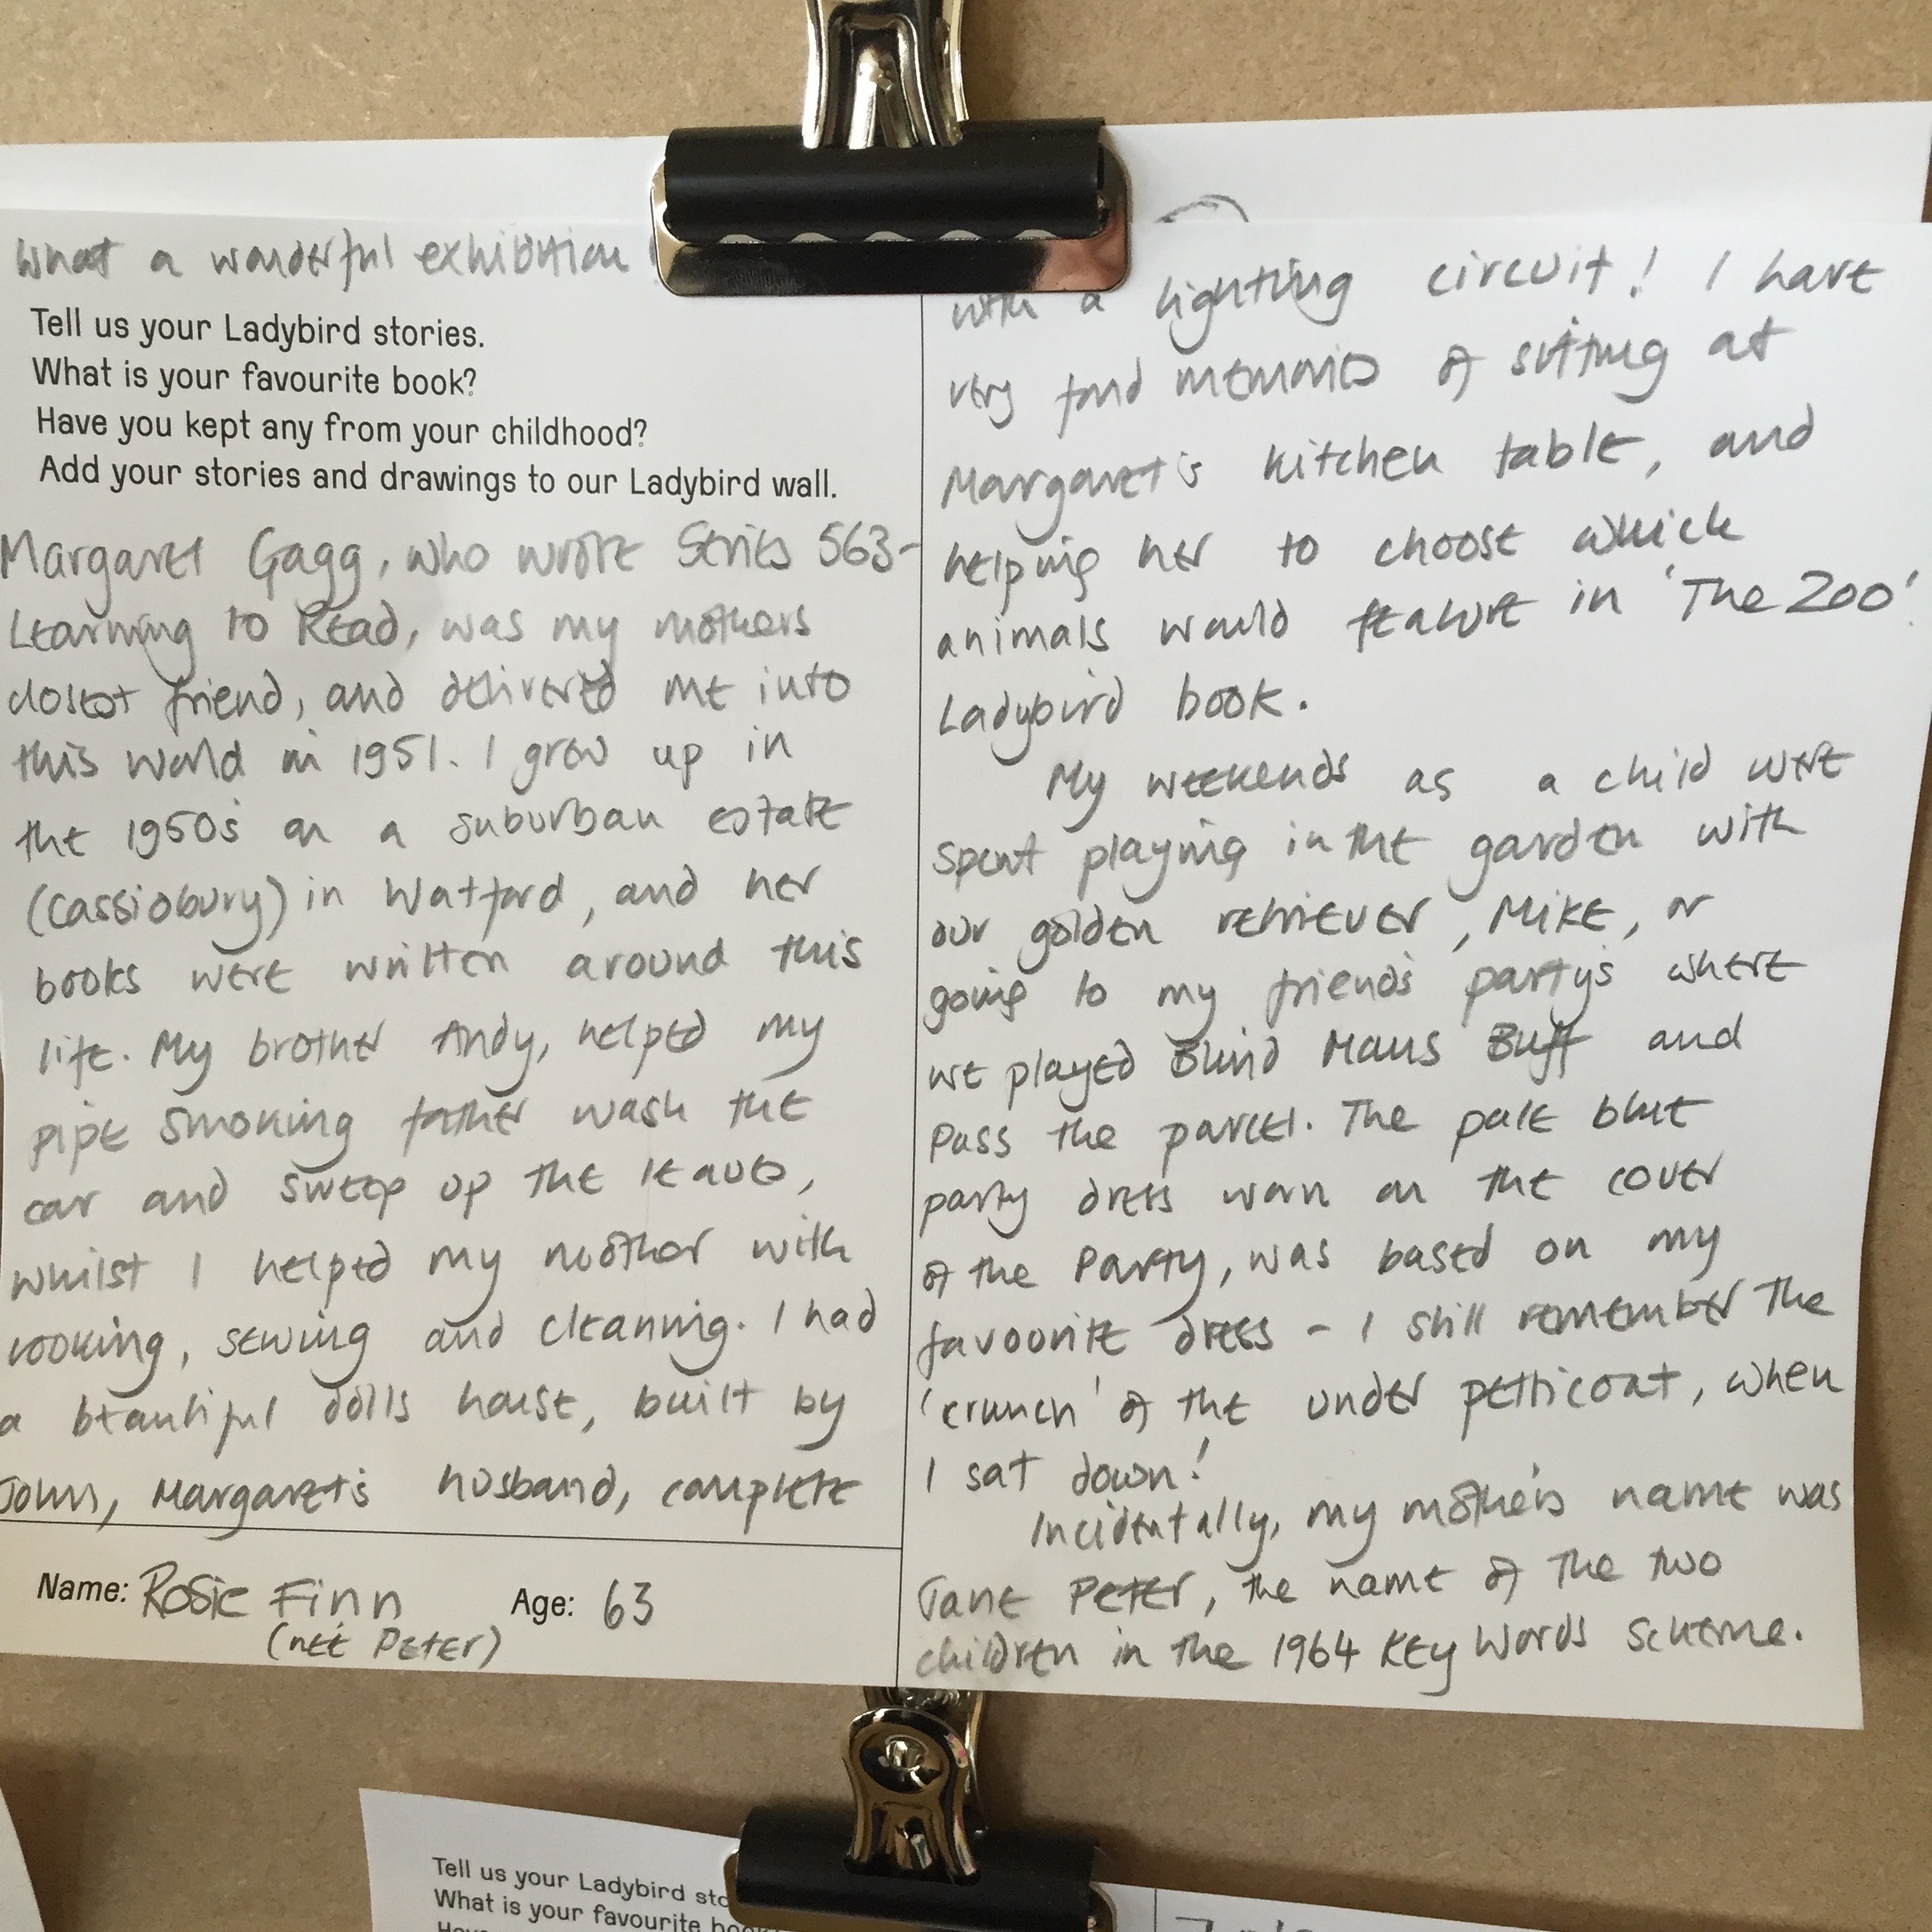 What a wonderful exhibition
Tell us your Ladybird stories.
What is your favourite book?
Have you kept any from your childhood?
Add your stories and drawings to our Ladybird wall.
Margaret Gagg, who wrote Series 563-
Learning to Read, was my mothers
closest friend, and delivered me into
this world in 1951. I grew up in
the 1950s on a suburban estate
(Cassiobury) in Watford, and her
books were written around this
life. My brother Andy, helped my
pipe smoking father wash the
car and sweep up the leaves,
whilst I helped my mother with
cooking, sewing and cleaning. I had
a beautiful dolls house, built by
John, Margaret's husband, complete
Name: Rosie Finn Age: 63
(neé Peter)
with a lighting circuit! I have
very fond memories of sitting at
Margaret's kitchen table, and
helping her to choose which
animals would feature in 'The Zoo'
Ladybird book.
My weekends as a child were
spent playing in the garden with
our golden retriever, Mike, or
going to my friends' party's where
we played Blind Mans Buff and
Pass the parcel. The pale blue
party dress worn on the cover
of the Party, was based on my
favourite dress - I still remember the
'crunch' of the under petticoat, when
I sat down!
Incidentally, my mother's name was
Jane Peter, the name of the two
children in the 1964 Key Words Scheme.
Tell us your Ladybird
What is your favourite